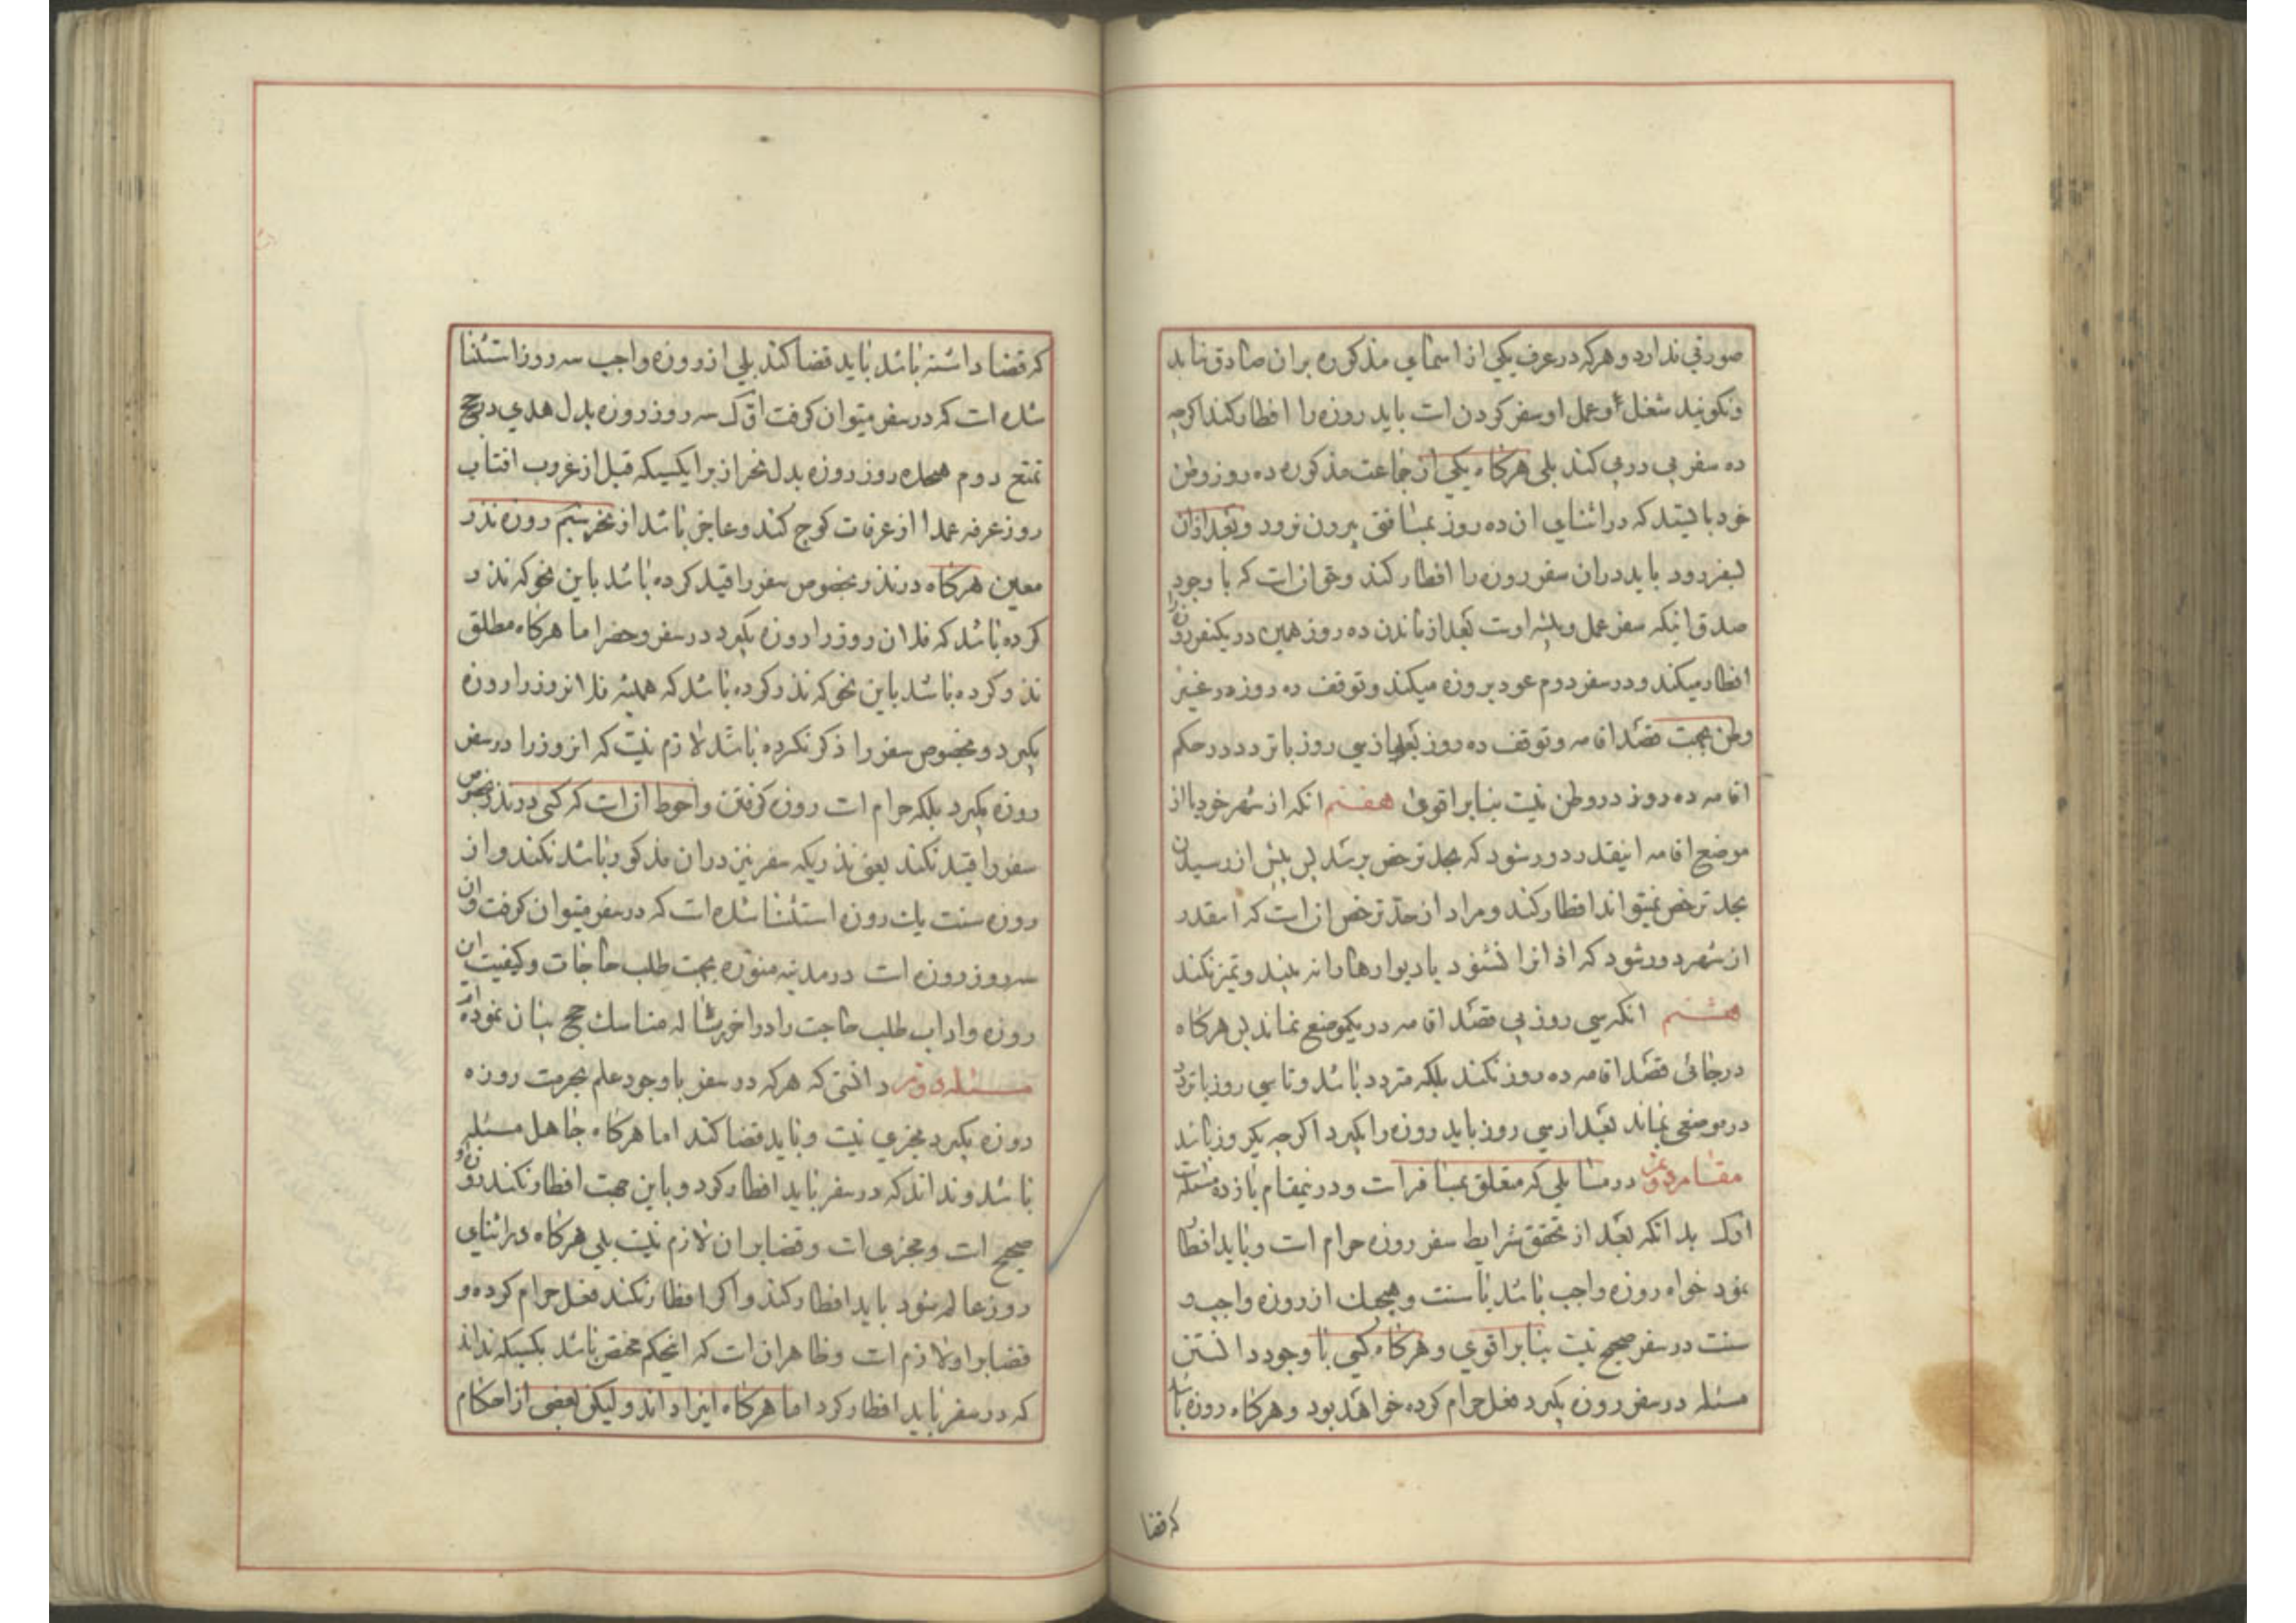 صورتی ندارد و هرکه در عرف یکی از اسمای مذکوره بر ان صادق نیاید
و نکویند شغل او عمل او سفر کردن است باید روزه را افطار کند اکرچه
ده سفر پی در پی کند بلی هرکاه یکی از جماعت مذکوره ده روز وطن
خود بایستد که در اثنای ان ده روز بمسافتی بیرون نرود و بعد از ان
بسفر رود باید در ان سفر روزه را افطار کند و حق ان است که با وجود
صدق اینکه سفر عمل و پیشه اوست بعد از ماندن ده روز همین در یکسفر روزه را
افطار میکند و در سفر دوم عود بروزه میکند و توقف ده روز در غیر
وطن بجهت قصد اقامه و توقف ده روز بعد از سی روز با تردد در حکم
اقامه ده روز در وطن نیست بنا بر اقوی هفتم انکه از شهر خود یا از
موضع اقامه اینقدر دور شود که بحد ترخص برسد پس پیش از رسیدن
بحد ترخص نمیتواند افطار کند و مراد از حد ترخص ان است که اینقدر
از شهر دور شود که اذانرا نشنود یا دیوارها را نه بیند و تمیز نکند
هشتم انکه سی روز بی قصد اقامه در یکموضع نماند پس هرکاه
در جائی قصد اقامه ده روز نکند بلکه متردد باشد و تا سی روز با تردد
در موضعی بماند بعد از سی روز باید روزه را بکیرد اکرچه یکروز باشد
مقام دوم در مسایلی که متعلق بمسافر است و در نمقام یازده مسئله است
اول بدانکه بعد از تحقق شرایط سفر روزه حرام است و باید افطار
نمود خواه روزه واجب باشد یا سنت و هیچیک از روزه واجب و
سنت در سفر صحیح نیست بنا بر اقوی و هرکاه کسی با وجود دانستن
مسئله در سفر روزه بکیرد فعل حرام کرده خواهد بود و هرکاه روزه باشد
که قضا
که قضا داشته باشد باید قضا کند بلی از روزه واجب سه روز استثنا
شده است که در سفر میتوان کرفت اول سه روز روزه بدل هدی در حج
تمتع دوم هجده روز روزه بدل نحر از برای کسیکه قبل از غروب افتاب
روز عرفه عمدا از عرفات کوچ کند و عاجز باشد از نحر سیم روزه نذر
معین هرکاه در نذر بخصوص سفر را قید کرده باشد باین نحو که نذر
کرده باشد که فلان روز را روزه بکیرد در سفر و حضر اما هرکاه مطلق
نذر کرده باشد باین نحو که نذر کرده باشد که همیشه فلانروز را روزه
بکیرد و بخصوص سفر را ذکر نکرده باشد لازم نیست که انروز را در سفر
روزه بکیرد بلکه حرام است روزه کرفتن و احوط ان است که کسی در نذر بخصوص
سفر را قید نکند یعنی نذریکه سفر نیز در ان مذکور باشد نکند و از
روزه سنت یک روزه استثنا شده است که در سفر میتوان کرفت و ان
سه روز روزه است در مدینه منوره بجهت طلب حاجات و کیفیت ان
روزه و اداب طلب حاجت را در اخر رساله مناسک حج بیان نموده ام
مسئله دوم دانستی که هرکه در سفر با وجود علم بحرمت روزه
روزه بکیرد مجزی نیست و باید قضا کند اما هرکاه جاهل مسئله
باشد و نداند که در سفر باید افطار کرد و باین جهت افطار نکند روزه او
صحیح است و مجزی است و قضا بر ان لازم نیست بلی هرکاه در اثنای
روز عالم شود باید افطار کند و اکر افطار نکند فعل حرام کرده و
قضا بر او لازم است و ظاهر ان است که اینحکم مختص باشد بکسیکه نداند
که در سفر باید افطار کرد اما هرکاه اینرا داند و لیکن بعضی از احکام